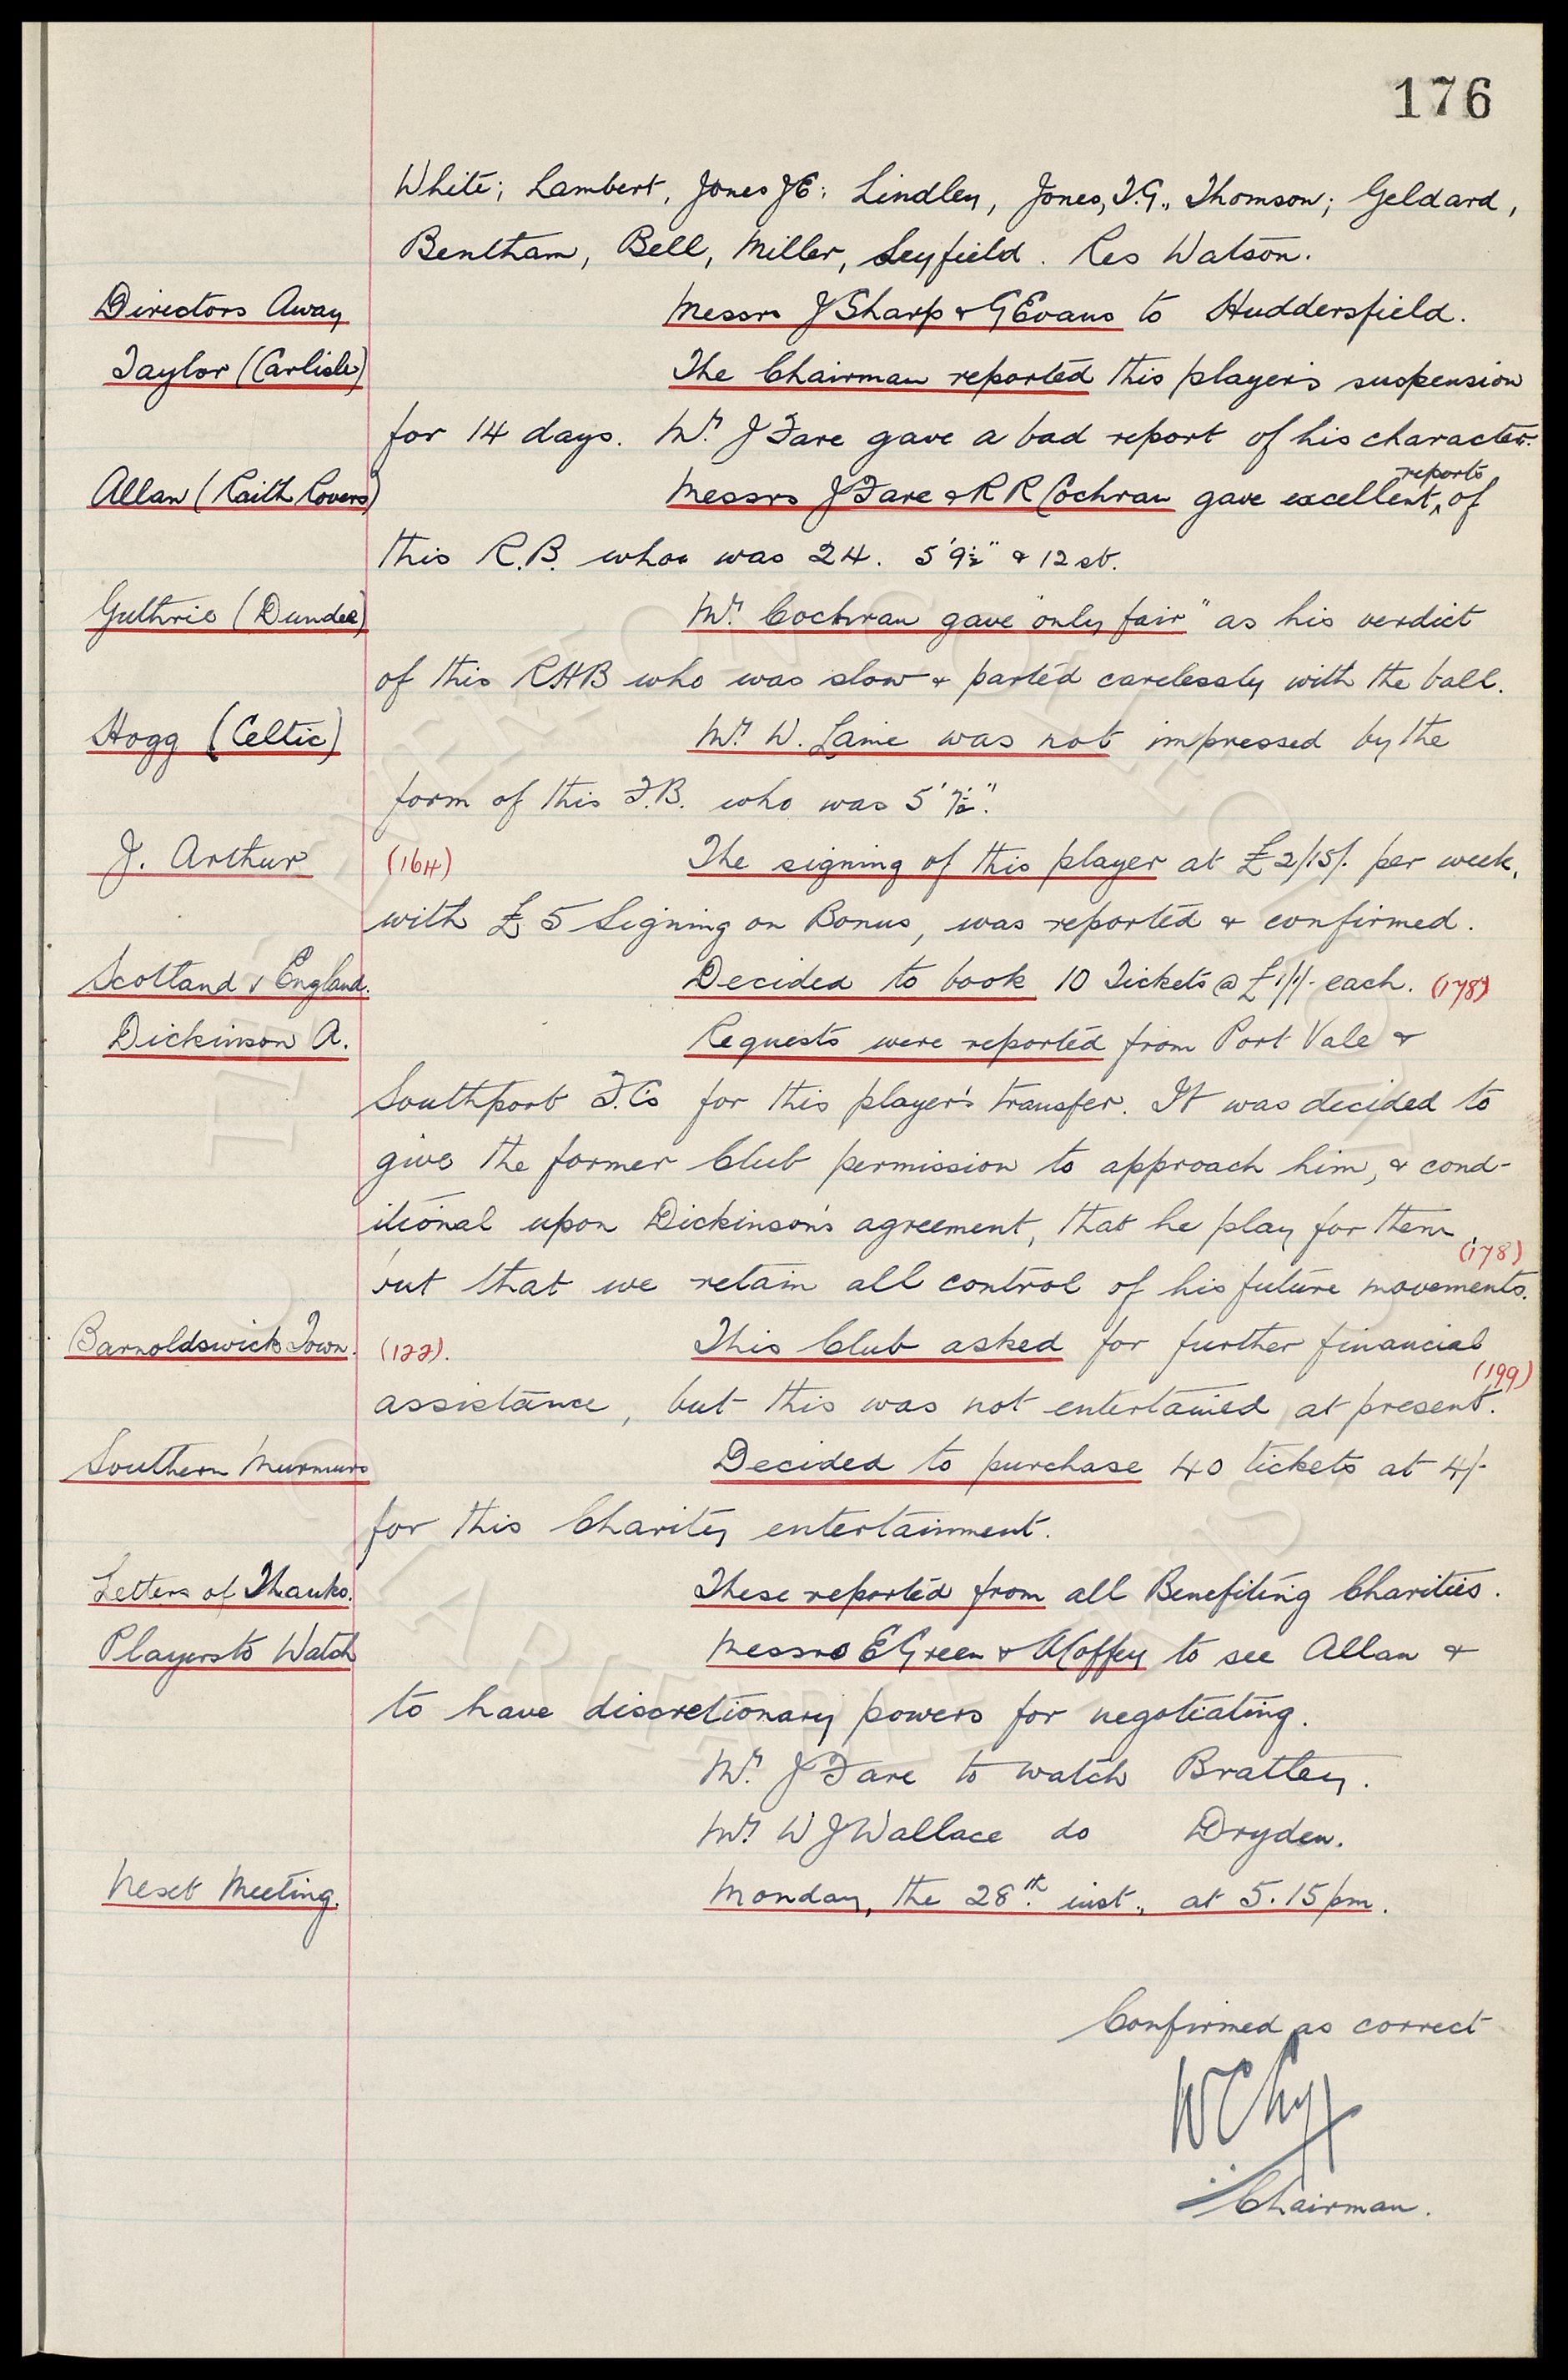 176
White; Lambert, Jones J E; Lindley, Jones, T.G., Thomson; Geldard,
Bentham, Bell, Miller, Leyfield. Res Watson.
Directors Away Messrs J Sharp & G Evans to Huddersfield.
Taylor (Carlisle) The Chairman reported this player's suspension
for 14 days. Mr. J Fare gave a bad report of his character.
Allan (Raith Rovers) Messrs J Fare & R R Cochran gave excellent reports of
this R.B. who was 24. 5' 9½" & 12 st.
Guthrie (Dundee) Mr. Cochran gave "only fair" as his verdict
of this RHB who was slow & parted carelessly with the ball.
Hogg (Celtic) Mr. W. Laine was not impressed by the
form of this F.B. who was 5' 7½".
J. Arthur (164) The signing of this player at £2/15/- per week,
with £5 Signing on Bonus, was reported & confirmed.
Scotland v England. Decided to book 10 Tickets @ £1/1/- each. (178)
Dickinson A. Requests were reported from Port Vale &
Southport F.Cs for this player's transfer. It was decided to
give the former Club permission to approach him, & cond-
itional upon Dickinson's agreement, that he play for them,
but that we retain all control of his future movements. (178)
Barnoldswick Town. (122). This Club asked for further financial
assistance, but this was not entertained at present. (199)
Southern Murmurs Decided to purchase 40 tickets at 4/-
for this Charity entertainment.
Letters of Thanks. These reported from all Benefiting Charities.
Players to Watch Messrs E Green & A Coffey to see Allan &
to have discretionary powers for negotiating.
Mr. J Fare to watch Brattey.
Mr. W J Wallace do Dryden.
Next Meeting. Monday, the 28th. inst., at 5.15 pm.
Confirmed as correct
Chairman.